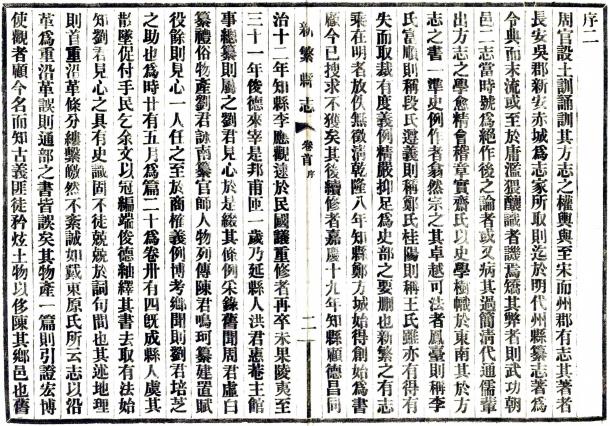 序二
周官設土訓誦訓其方志之權輿與至宋而州郡有志其著者
長安吳郡新安赤城為志家所取則迄於明代州縣纂志著為
令典而末流或至於庸濫猥釀識者譏焉矯其弊者則武功朝
邑二志當時號為絕作後之論者或又病其過簡清代通儒輩
出方志之學愈精會稽章實齋氏以史學樹幟於東南其於方
志之書一準史例作者翕然宗之其卓越可法者鳳臺則稱李
氏富順則稱段氏遵義則稱鄭氏桂陽則稱王氏雖亦有得有
失而取裁有度義例精嚴抑足為史部之要刪也新繁之有志
乘在明者放佚無徵清乾隆八年知縣鄭方城始得創始為書
顧今已搜求不獲矣其後續修者嘉慶十九年知縣顧德昌同
新繁縣志
卷首 序
二
治十二年知縣李應觀迷於民國議重修者再卒未果陵夷至
三十一年俊德來宰是邦甫匝一歲乃延縣人洪君憲菴主館
事總纂則屬之劉君見心於是綴其條例采錄舊聞周君虛白
纂禮俗物產劉君詠南纂官師人物列傳陳君鳴珂纂建置賦
役餘則見心一人任之至於商榷義例博考鄉聞則劉君培芝
之助也為時廿有五月為篇二十為卷卅有四既成縣人虞其
散墜促付手民乞余文以冠編端俊德紬繹其書去取有法始
知劉君見心之具有史識固不徒兢兢於詞句間也其述地理
則首重沿革條分縷繫皦然不紊誠如戴東原氏所云志以沿
革為重沿革誤則通部之書皆誤矣其物產一篇則引證宏博
使觀者顧今名而知古義匪徒矜炫土物以侈陳其鄉邑也舊